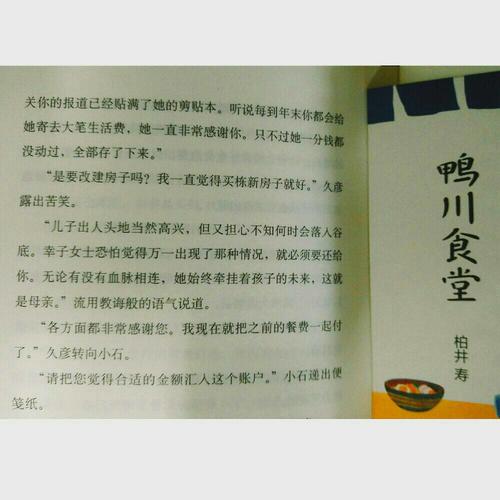 关你的报道已经贴满了她的剪贴本。听说每到年末你都会给
她寄去大笔生活费，她一直非常感谢你。只不过她一分钱都
没动过，全部存了下来。”
“是要改建房子吗？我一直觉得买栋新房子就好。”久彦
露出苦笑。
“儿子出人头地当然高兴，但又担心不知何时会落入谷
底。幸子女士恐怕觉得万一出现了那种情况，就必须要还给
你。无论有没有血脉相连，她始终牵挂着孩子的未来，这就
是母亲。”流用教诲般的语气说道。
“各方面都非常感谢您。我现在就把之前的餐费一起付
了。”久彦转向小石。
“请把您觉得合适的金额汇入这个账户。”小石递出便
笺纸。
鸭川食堂
柏井寿